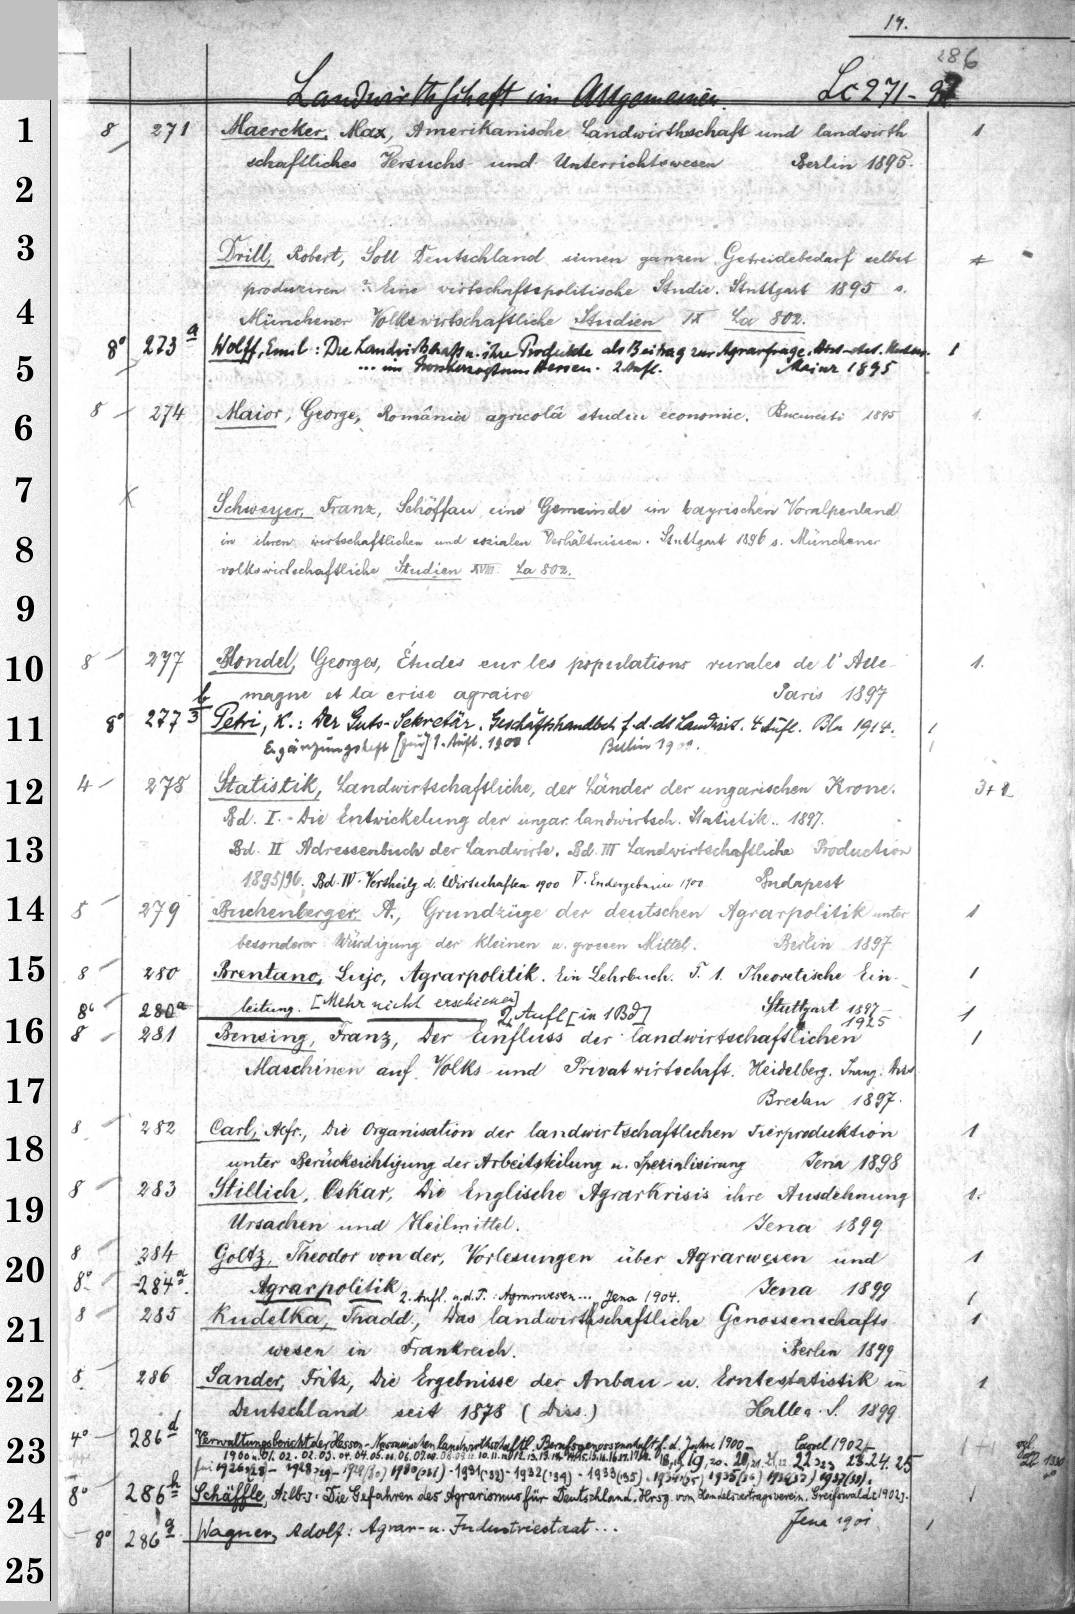 17.
286
Landwirthschaft im Allgemeinen. Lc 271-
1 8 271 Maercker, Max, Amerikanische Landwirthschaft und landwirth
schaftliches Versuchs- und Unterrichtswesen Berlin 1895. 1
2
3 Drill, Robert, Soll Deutschland seinen ganzen Getreidebedarf selbst
produziren? Eine wirtschaftspolitische Studie. Stuttgart 1895 s.
4 Münchener Volkswirtschaftliche Studien IX La 802.
8° 273a Wolff, Emil: Die Landwirtschaft u. ihre Produkte als Beitrag zur Agrarfrage. 1
5 ... im Grossherzogtum Hessen. 2. Aufl. Mainz 1895
6 8 274 Maior, George, România agricolă studiu economic. Bucuresti 1895 1.
7 Schweyer, Franz, Schöffau eine Gemeinde im bayrischen Voralpenland
8 in ihren wirtschaftlichen und sozialen Verhältnissen. Stuttgart 1896 s. Münchener
volkswirtschaftliche Studien XVIII. La 802.
9
10 8 277 Blondel, Georges, Études sur les populations rurales de l'Alle-
magne et la crise agraire Paris 1897 1.
11 8° 277b Petri, K.: Der Guts-Sekretär. Geschäftshandbch f. d. dt Landwirt. 4. Aufl. Bln 1914. 1
Ergänzungsheft [zur] 1. Aufl. 1900 Berlin 1
12 4 278 Statistik, Landwirtschaftliche, der Länder der ungarischen Krone. 3+2
Bd. I. - Die Entwickelung der ungar. landwirtsch. Statistik. 1897.
13 Bd. II Adressenbuch der Landwirte. Bd. III Landwirtschaftliche Production
1895/96. Bd. IV. Verteilg d. Wirtschaften 1900 V. Endergebnisse 1900 Budapest
14 8 279 Buchenberger, A., Grundzüge der deutschen Agrarpolitik unter 1
besonderer Würdigung der kleinen u. grossen Mittel. Berlin 1897
15 8 280 Brentano, Lujo, Agrarpolitik. Ein Lehrbuch. T. 1. Theoretische Ein- 1
leitung. [Mehr nicht erschienen] Stuttgart 1897
16 8° 280a 2. Aufl [in 1 Bd] 1925 1
8 281 Bensing, Franz, Der Einfluss der landwirtschaftlichen 1
Maschinen auf Volks- und Privatwirtschaft. Heidelberg. Inaug. Diss
17 Breslau 1897.
18 8 282 Carl, Alfr., Die Organisation der landwirtschaftlichen Tierproduktion 1
unter Berücksichtigung der Arbeitsteilung u. Spezialisirung Jena 1898
19 8 283 Stillich, Oskar, Die Englische Agrarkrisis ihre Ausdehnung 1.
Ursachen und Heilmittel. Jena 1899
20 8 284 Goltz, Theodor von der, Vorlesungen über Agrarwesen und 1
8° 284a Agrarpolitik Jena 1899
2. Aufl. u. d. T.: Agrarwesen... Jena 1904. 1
21 8 285 Kudelka, Thadd., Das landwirthschaftliche Genossenschafts- 1
wesen in Frankreich. Berlin 1899
22 8 286 Sander, Fritz, Die Ergebnisse der Anbau- u. Erntestatistik in 1
Deutschland seit 1878 (Diss.) Halle a. S. 1899
23 4° 286d Verwaltungsbericht der Hessen-Nassauischen landwirthschaftl. Berufsgenossenschaft f. d. Jahre 1900- Cassel 1902-
24 8° 286h Schäffle, Alb.: Die Gefahren des Agrarismus für Deutschland. Hrsg. von Handelsvertragsverein. Greifswald 1902.
8° 286g Wagner, Adolf: Agrar- u. Industriestaat... Jena 1901 1
25